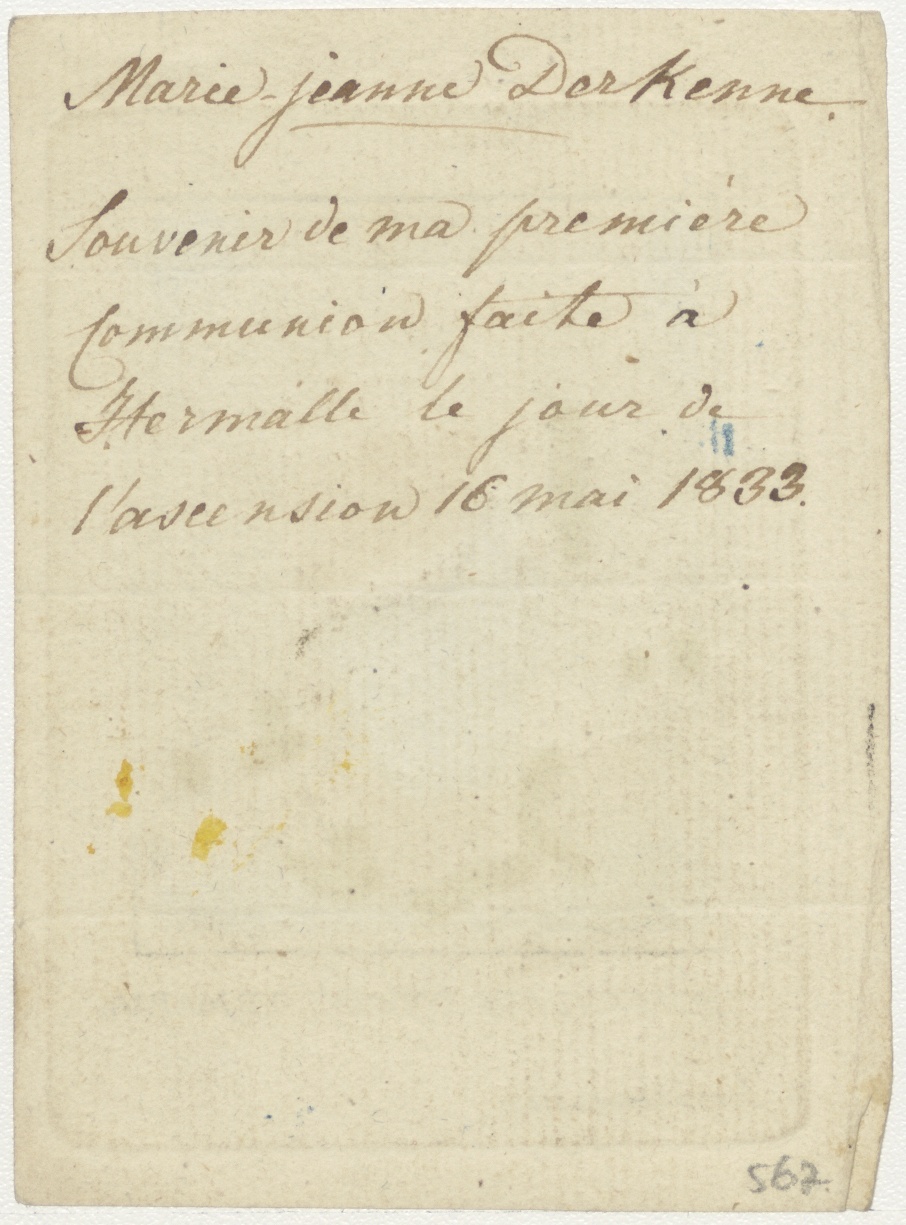 Marie-jeanne Derkenne.
Souvenir de ma première
Communion faite à
Hermalle le jour de
l'ascension 16 mai 1833.
567.